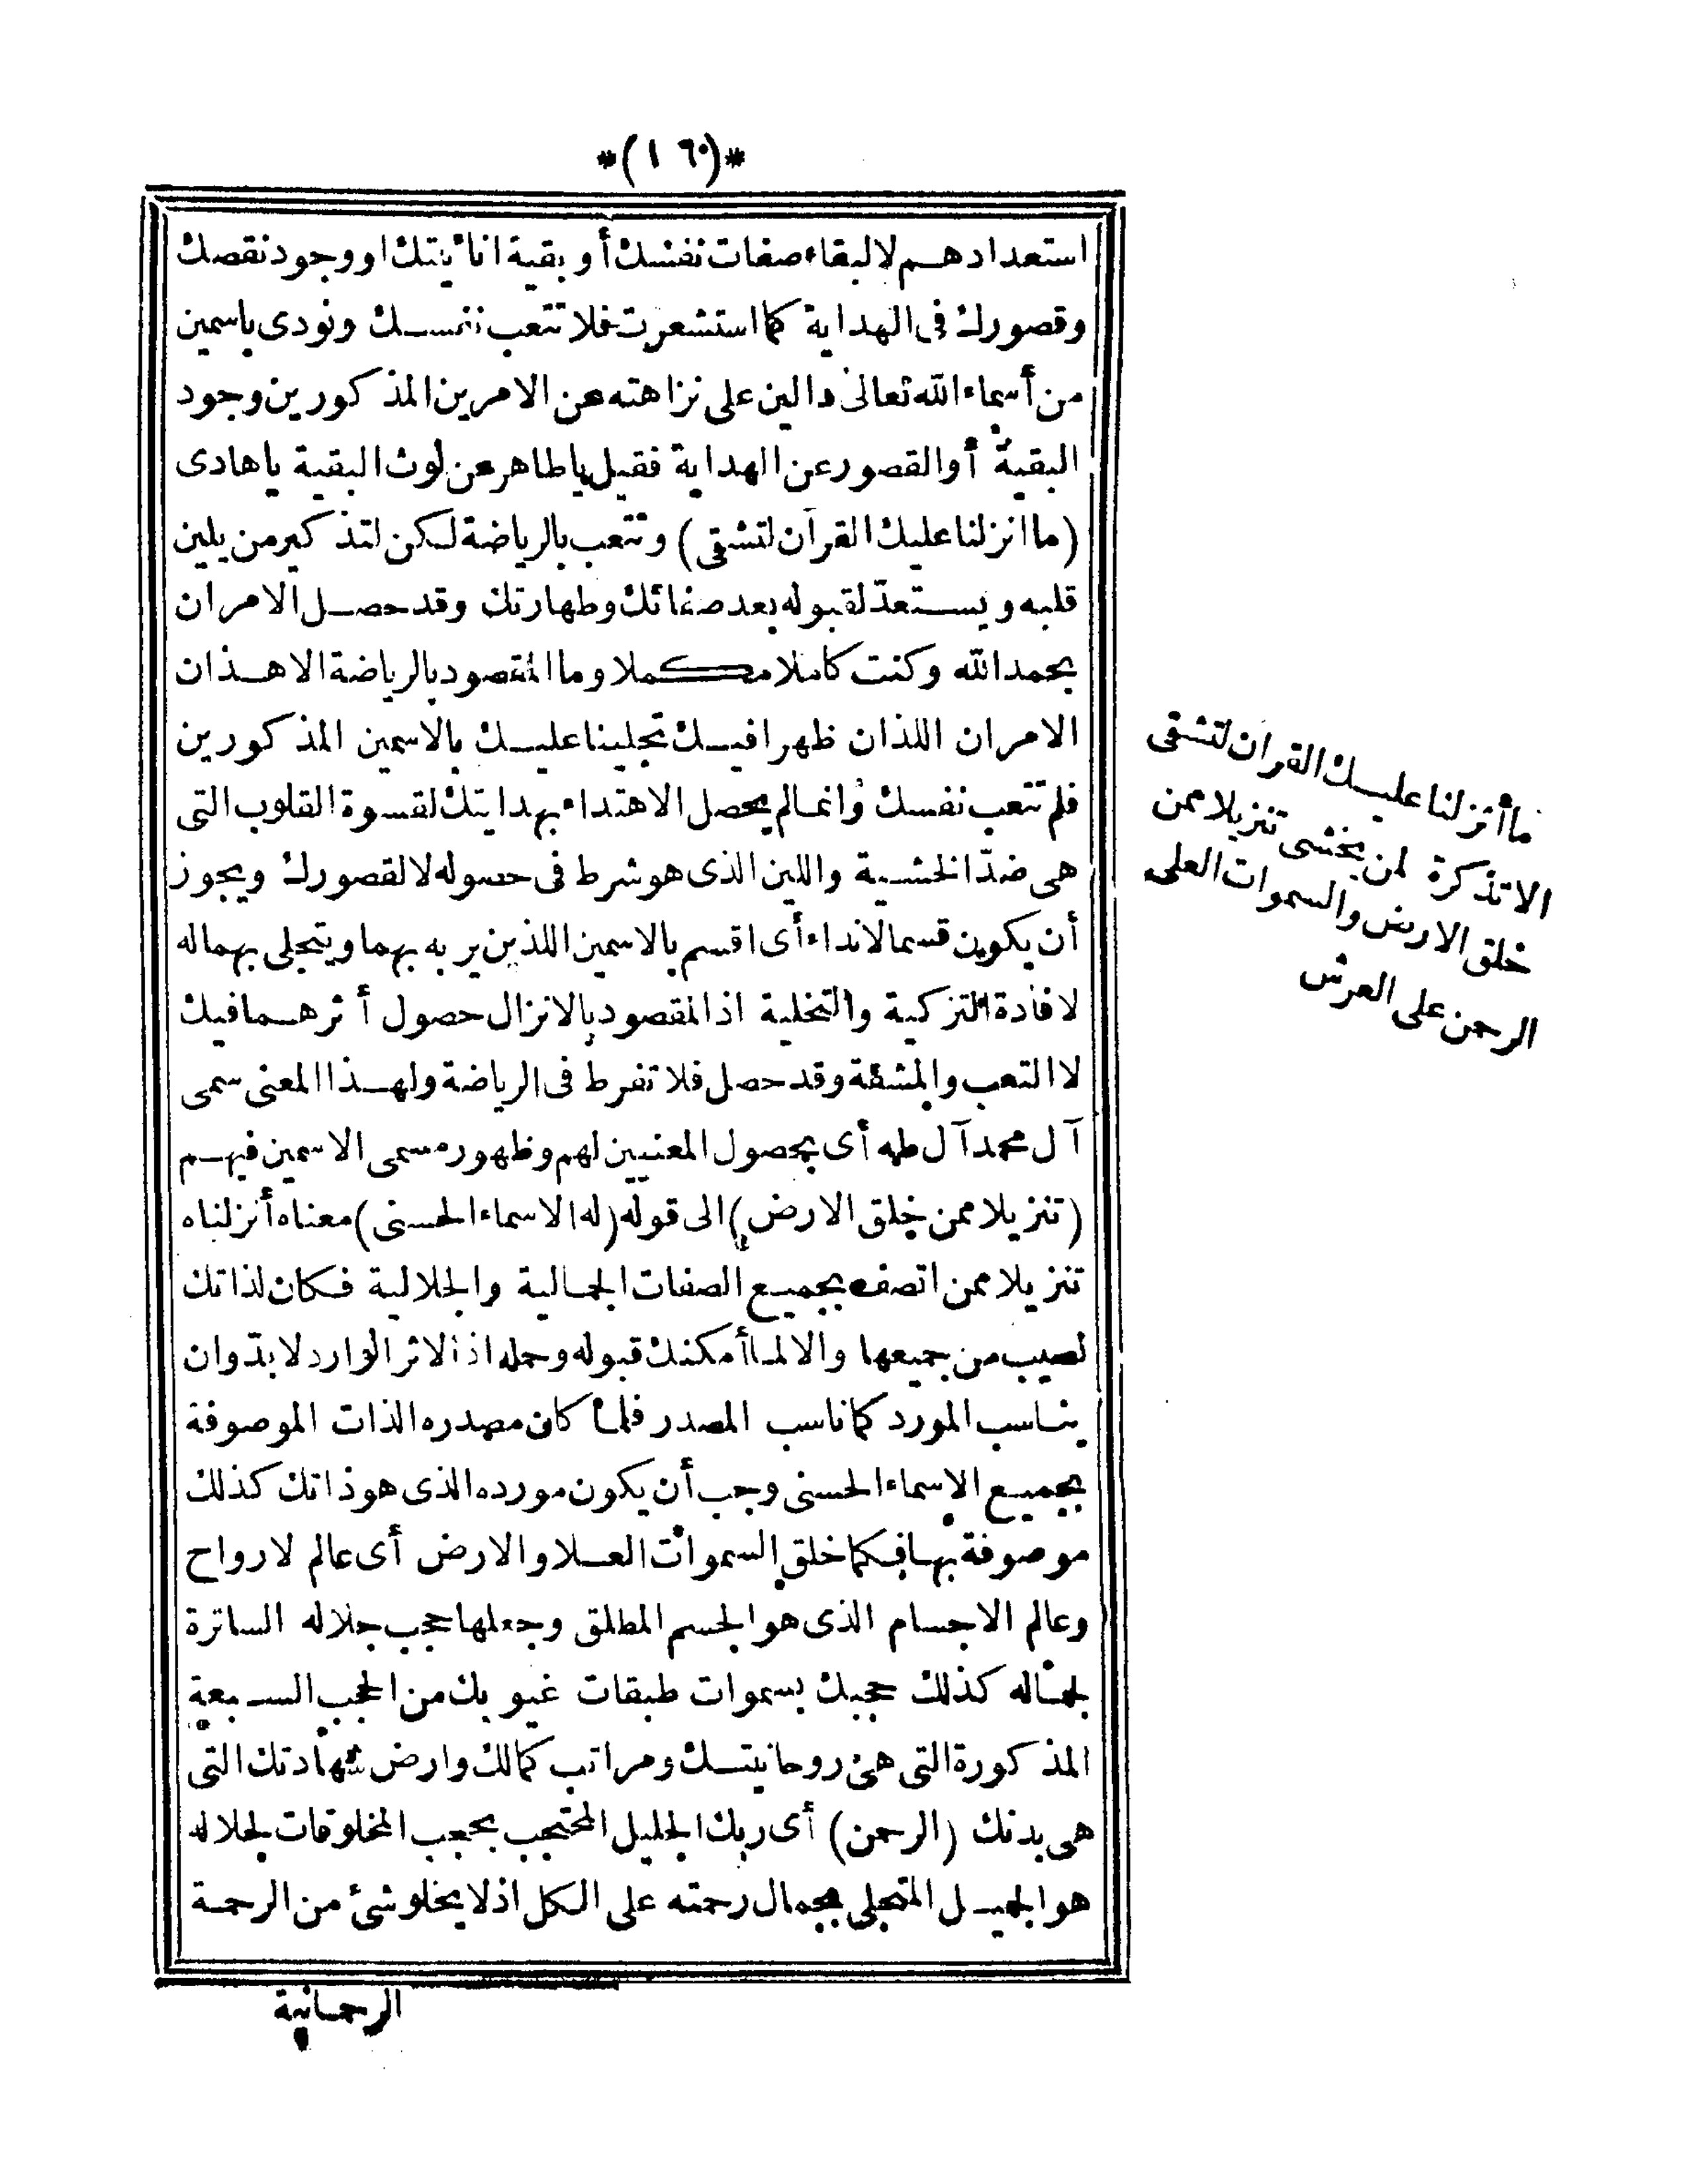 *(١٦٠)*
استعدادهم لالبقاء صفات نفسك أو بقية انائيتك او وجود نقصك
وقصورك فى الهداية كما استشعرت فلا تتعب نفسك ونودى باسمين
من أسماء الله تعالى دالين على نزاهته عن الامرين المذكورين وجود
البقية أو القصور عن الهداية فقيل يا طاهر عن لوث البقية يا هادى
(ما انزلنا عليك القرآن لتشقى) وتتعب بالرياضة لكن لتذكير من يلين
قلبه ويستعدّ لقبوله بعد صفائك وطهارتك وقد حصل الامران
بحمد الله وكنت كاملا مكملا وما المقصود بالرياضة الا هذان
الامران اللذان ظهرا فيك بتجلينا عليك بالاسمين المذكورين
فلم تتعب نفسك وانما لم يحصل الاهتداء بهدايتك لقسوة القلوب التى
هى ضدّ الخشية واللين الذى هو شرط فى حصوله لا لقصورك ويجوز
أن يكون قسما لانداء أى اقسم بالاسمين اللذين يربه بهما ويتجلى بهما له
لافادة التزكية والتخلية اذ المقصود بالانزال حصول أثرهما فيك
لا التعب والمشقة وقد حصل فلا تفرط فى الرياضة ولهذا المعنى سمى
آل محمد آل طه أى بحصول المعنيين لهم وظهور مسمى الاسمين فيهم
(تنزيلا ممن خلق الارض) الى قوله (له الاسماء الحسنى) معناه أنزلناه
تنزيلا ممن اتصف بجميع الصفات الجمالية والجلالية فكان لذاتك
نصيب من جميعها والا لما أمكنك قبوله وحمله اذ الاثر الوارد لا بدّ وان
يناسب المورد كما ناسب المصدر فلما كان مصدره الذات الموصوفة
بجميع الاسماء الحسنى وجب أن يكون مورده الذى هو ذاتك كذلك
موصوفة بها فكما خلق السموات العلا والارض أى عالم لارواح
وعالم الاجسام الذى هو الجسم المطلق وجعلها حجب جلاله الساترة
لجماله كذلك حجبك بسموات طبقات غيوبك من الحجب السبعة
المذكورة التى هى روحانيتك ومراتب كمالك وارض شهادتك التى
هى بدنك (الرحمن) أى ربك الجليل المحتجب بحجب المخلوقات لجلاله
هو الجميل المتجلى بجمال رحمته على الكل اذ لا يخلو شئ من الرحمة
الرحمانية
ما أنزلنا عليك القرآن لتشقى
الا تذكرة لمن يخشى تنزيلا ممن
خلق الارض والسموات العلى
الرحمن على العرش